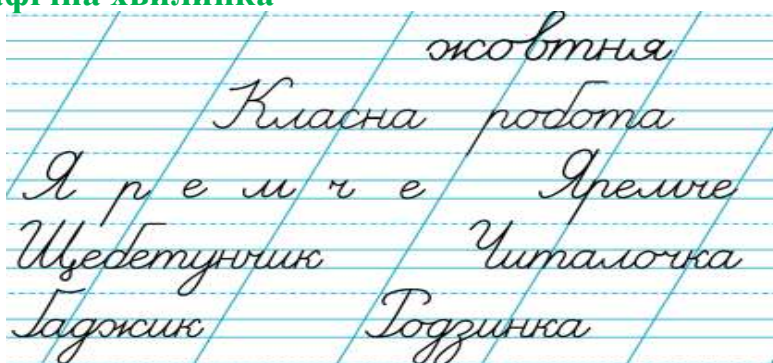 хвилинка
жовтня
Класна робота
Я р е м ч е Яремче
Щебетунчик Читалочка
Ґаджик Родзинка